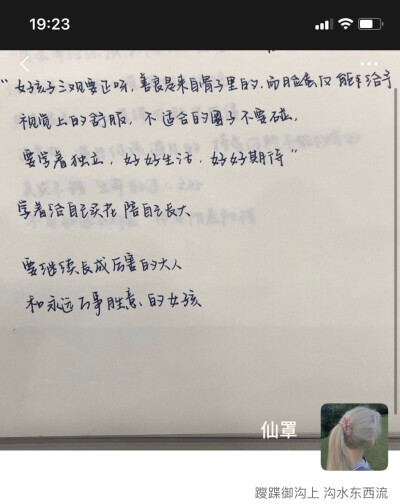 19:23
"女孩子三观要正呀,善良是来自骨子里的,而脸蛋仅能给予
视觉上的舒服,不适合的圈子不要碰,
要学着独立,好好生活,好好期待"
学着给自己买花 陪自己长大
要继续长成厉害的大人
和永远万事胜意、的女孩
仙罩
躞蹀御沟上 沟水东西流